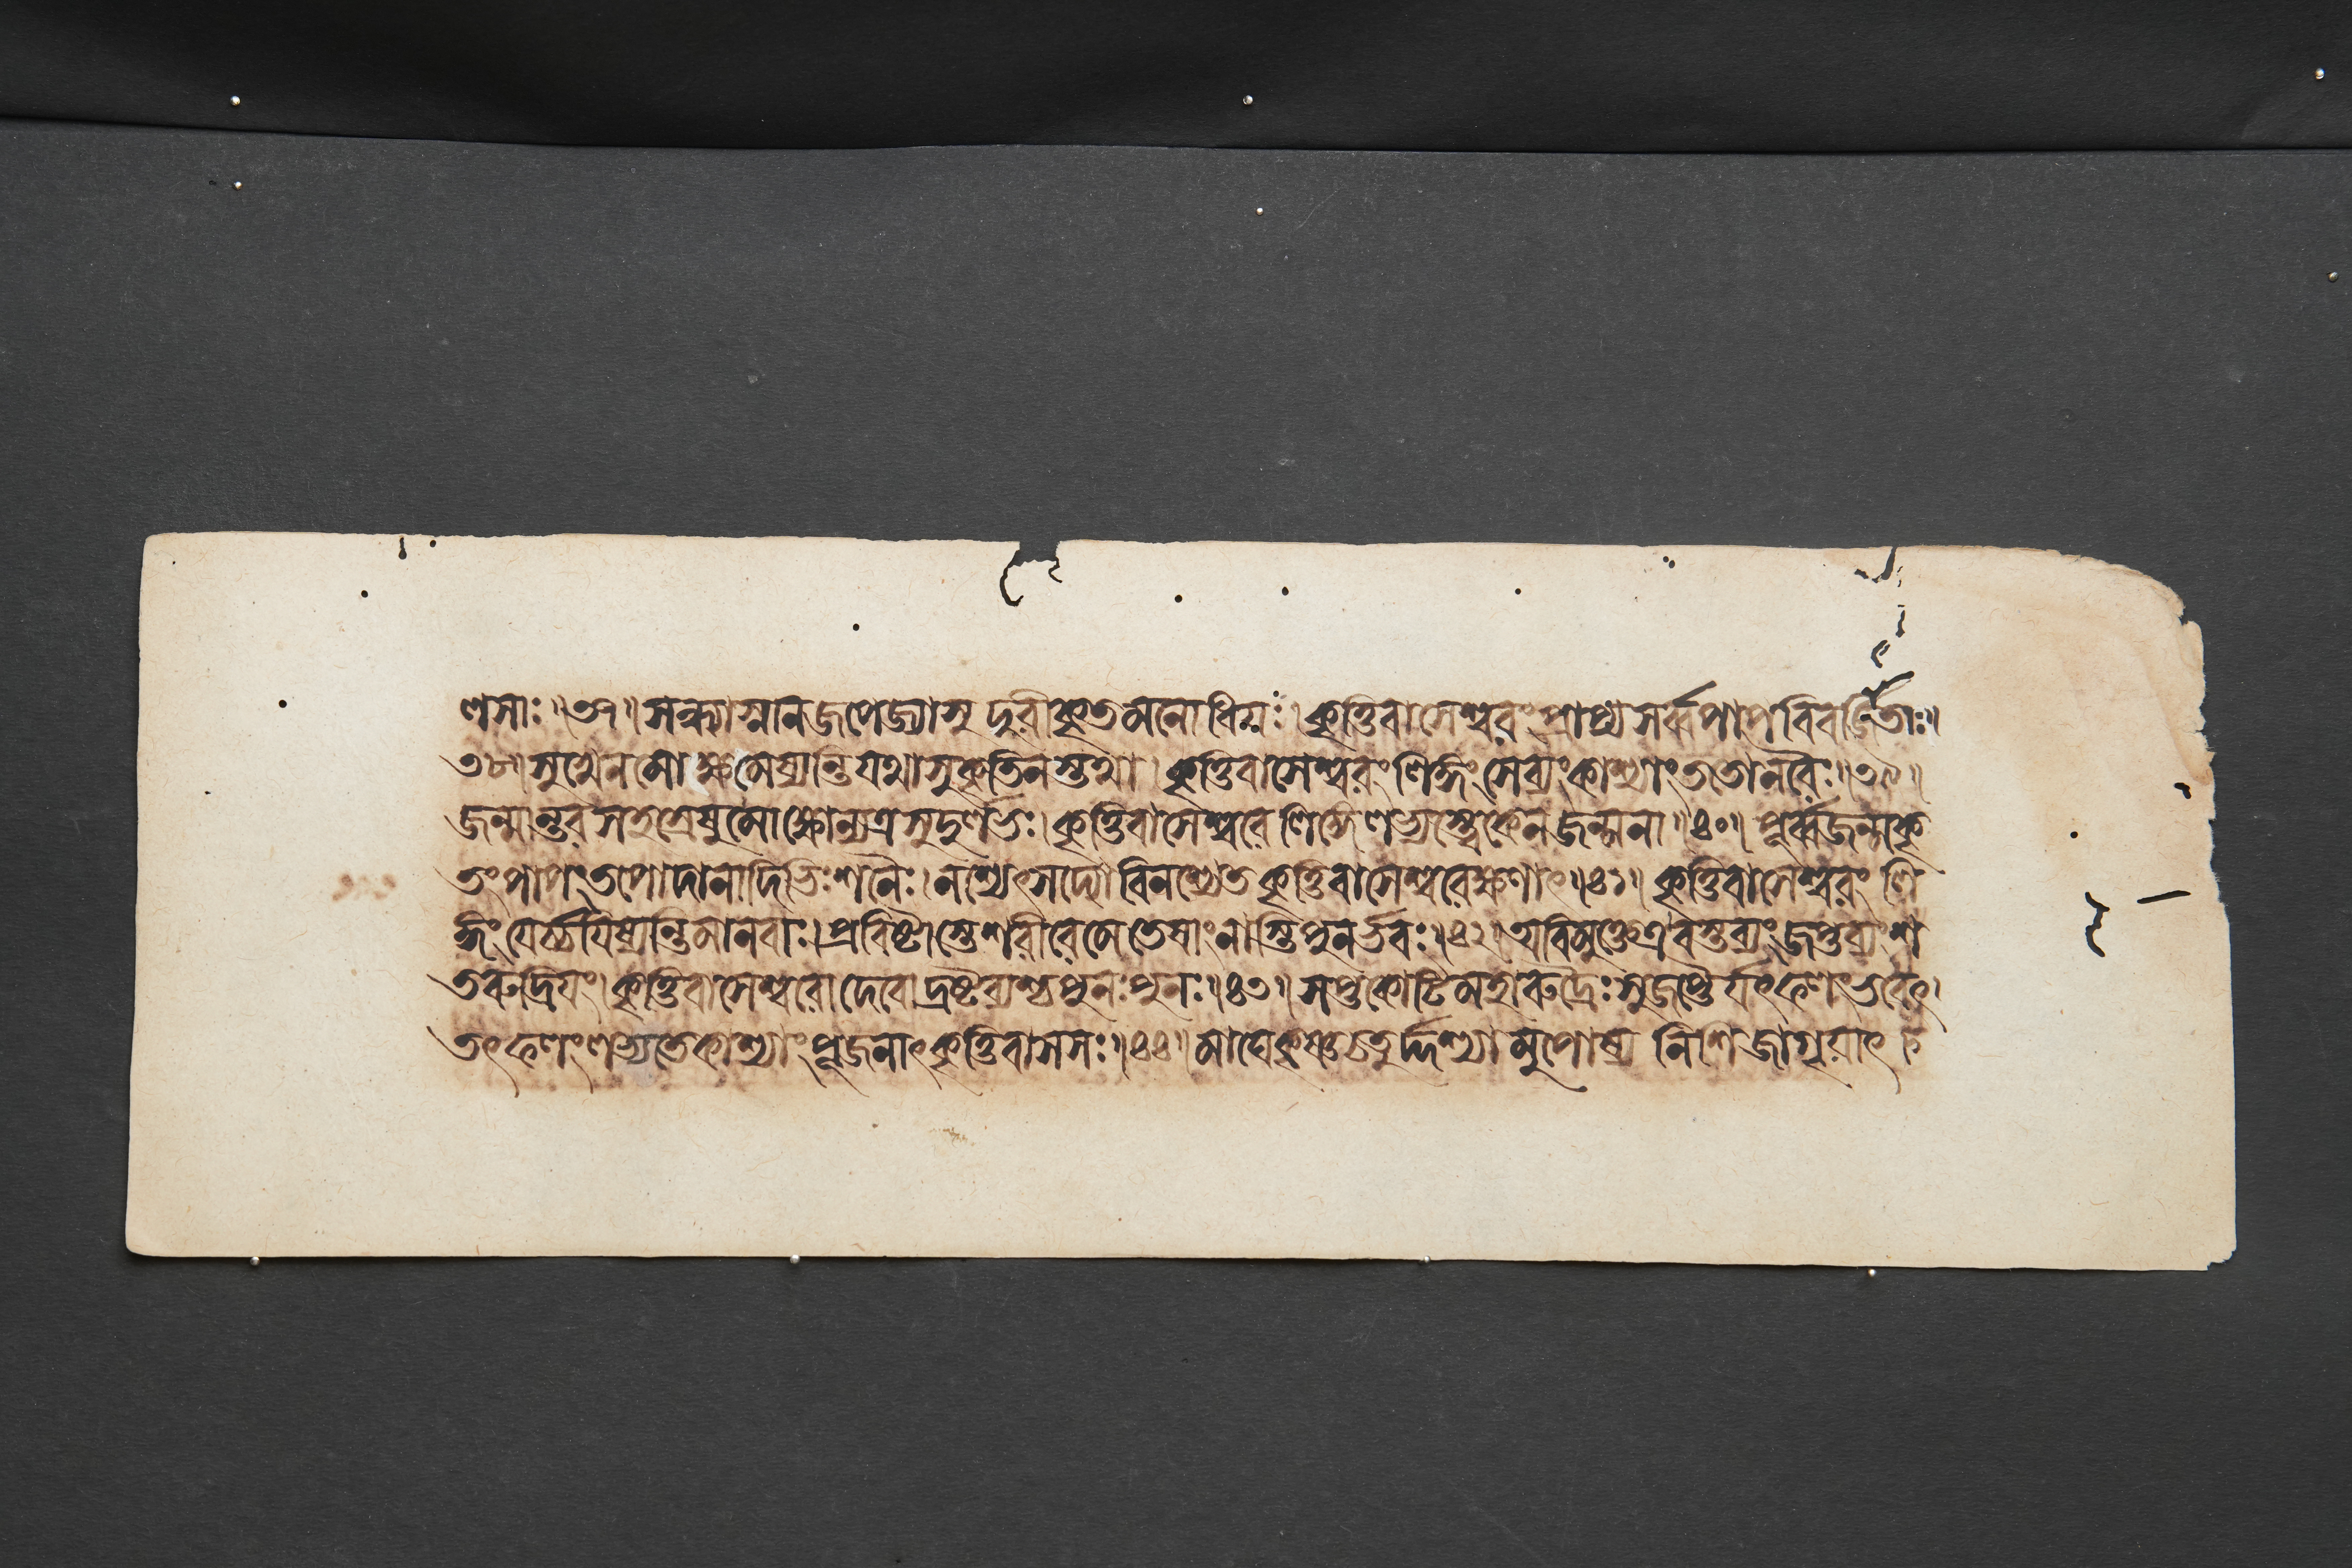 ণসাঃ॥৩৭॥সন্ধ্যাস্নানজপেজ্যাসু দূরীকৃতমনোধিয়ঃ।কৃত্তিবাসেশ্বরং প্রাপ্য সর্ব্বপাপবিবর্জিতাঃ॥
৩৮॥সুখেনমোক্ষমেষ্যন্তি যথাসুকৃতিনস্তথা।কৃত্তিবাসেশ্বরং লিঙ্গং সেব্যংকাশ্যাং ততোনরৈঃ॥৩৯॥
জন্মান্তরসহস্রেষুমোক্ষোন্যত্রসুদুর্লভঃ।কৃত্তিবাসেশ্বরেলিঙ্গেলভ্যস্ত্বেকেনজন্মনা॥৪০॥পূর্ব্বজন্মকৃ
তং পাপং তপোদানাদিভিঃ শনৈঃ।নশ্যেৎসদ্যোবিনশ্যেত কৃত্তিবাসেশ্বরেক্ষণাৎ॥৪১॥কৃত্তিবাসেশ্বরং লি
ঙ্গং যের্চ্চয়িষ্যন্তিমানবাঃ।প্রবিষ্টাস্তেশরীরেমে তেষাং নাস্তি পুনর্ভবঃ॥৪২॥অবিমুক্তেত্রবস্তব্যং জপ্তব্যং শ
তরুদ্রিয়ং।কৃত্তিবাসেশ্বরোদেবোদ্রষ্টব্যশ্চ পুনঃ পুনঃ॥৪৩॥সপ্তকোটিমহারুদ্রৈঃ সুজপ্তৈর্যৎফলং ভবেৎ।
তৎফলংলভ্যতেকাশ্যাং পূজনাৎকৃত্তিবাসসঃ॥৪৪॥মাঘেকৃষ্ণচতুর্দ্দশ্যামুপোষ্য নিশিজাগৃয়াৎ